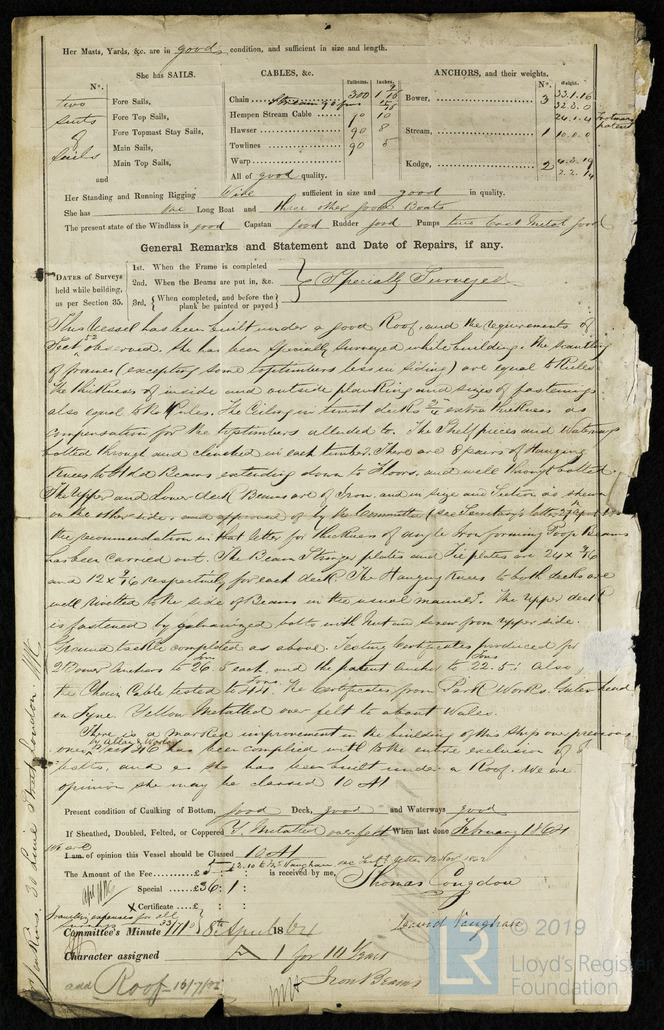 Her Masts, Yards, &c. are in good condition, and sufficient in size and length.
She has SAILS.
CABLES, &c.
Fathoms. Inches.
ANCHORS, and their weights.
N°. Weight.
N°.
two Fore Sails,
Suits Fore Top Sails,
of Fore Topmast Stay Sails,
Sails Main Sails,
Main Top Sails,
and
Chain 300 1 9/16
Hempen Stream Cable 90 10
Hawser 90 8
Towlines 90 5
Warp
All of good quality.
Bower, 3 33.1.16
32.3.0
24.1.4 Trotman's patent
Stream, 1 10.0.0
Kedge, 2 4.3.19
2.2.14
Her Standing and Running Rigging Wire sufficient in size and good in quality.
She has one Long Boat and three other good Boats
The present state of the Windlass is good Capstan good Rudder good Pumps two Cast Metal good
General Remarks and Statement and Date of Repairs, if any.
DATES of Surveys held while building, as per Section 35.
1st. When the Frame is completed
2nd. When the Beams are put in, &c.
3rd. When completed, and before the plank be painted or payed
Specially Surveyed
This Vessel has been built under a good Roof, and the requirements of
Sect 52 observed. She has been specially Surveyed while building. the scantling
of frames (excepting some toptimbers less in siding) are equal to Rules
the thickness of inside and outside planking and sizes of fastenings
also equal to the Rules. The Ceiling in twixt decks extra thickness as
compensation for the toptimbers alluded to. The Shelf pieces and Waterways
bolted through and clenched in each timber. There are 8 pairs of Hanging
Knees to Hold Beams extending down to Floors, and well through bolted.
The upper and lower deck Beams are of Iron, and in size and Section as shewn
on the other side, and approved of by the Committee (see Secretary's letter
the recommendation in that letter for thickness of angle Iron forming Poop Beams
has been carried out. The Beam Stringer plates and Tie plates are 24 x 9/16
and 12 x 9/16 respectively for each deck The Hanging Knees to both decks are
well rivetted to the side of Beams in the usual manner. The upper deck
is fastened by galvanized bolts with Nut and screw from upper side.
Ground tackle completed as above. Testing Certificates produced for
2 Bower Anchors to 26.5 Tons each, and the patent Anchor to 22.5 Tons also
the Chain Cable tested to 44 Tons. The Certificates from Park Works. Gateshead
on Tyne. Yellow Metalled over felt to about Wales.
There is a marked improvement in the building of this Ship over previous
ones, Sect 46 has been complied with to the entire exclusion of
bolts, and as she has been built under a Roof. We are
opinion she may be classed 10 A1
Present condition of Caulking of Bottom, good Deck, good and Waterways good
If Sheathed, Doubled, Felted, or Coppered Y. Metalled over felt When last done February 1864
We are
I am of opinion this Vessel should be Classed 10 A1
The Amount of the Fee £5 is received by me,
Special £36 : 1 :
Certificate £ : :
Thomas Congdon
David Vaughan
Travelling expenses for all
Committee's Minute 8th April 1864
Character assigned A 1 for 10 Years
Iron Beams
add Roof
30 Lime Street London
© 2019
LR
Lloyd's Register
Foundation